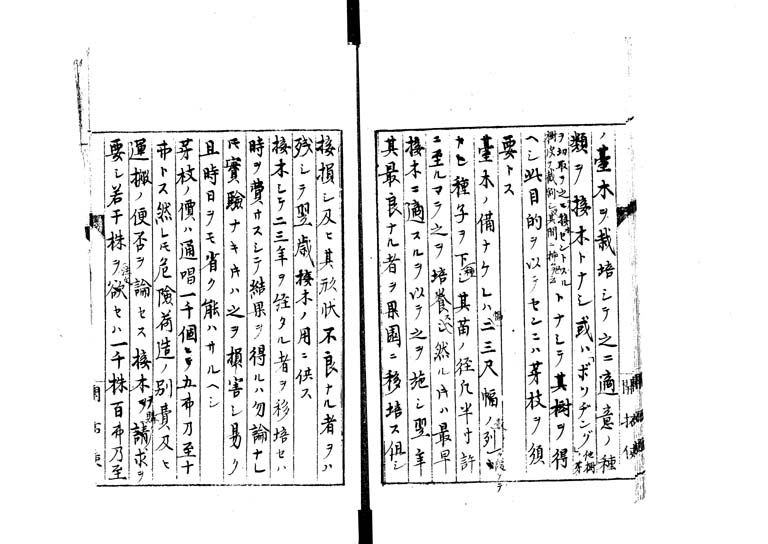 ノ臺木ヲ栽培シテ之ニ適意ノ種
類ヲ接木トナシ或ハ「ボッヂング」他樹ノ芽
ヲ切取リ之ニ接セントスル樹皮ヲ截割シ其間ニ挿ム也トナシテ其樹ヲ得
ヘシ此目的ヲ以テセンニハ芽枝ヲ須
要トス
臺木ノ備ナケレハ二三尺幅ノ列ニ
種子ヲ下シ其苗ノ径凡半寸許
ニ至ルマテ之ヲ培養ス然ル片ハ最早
接木ニ適スルヲ以テ之ヲ施シ翌年
其最良ナル者ヲ果園ニ移培ス但シ
開拓使
接損シ及ヒ其形状不良ナル者ヲハ
残シテ翌歳接木ノ用ニ供ス
接木シテ二三年ヲ経タル者ヲ移培セハ
時ヲ費サスシテ結果ヲ得ルハ勿論ナレ
𪜈實驗ナキ片ハ之ヲ損害シ易ク
且時日ヲモ省ク能ハサルヘシ
芽枝ノ價ハ通唱一千個ニテ五弗乃至十
弗トス然レ𪜈危險荷造ノ別費及ヒ
運搬ノ便否ヲ論セス接木ヲ請求ヲ
要シ若干株ヲ欲セハ一千株百弗乃至
開拓使